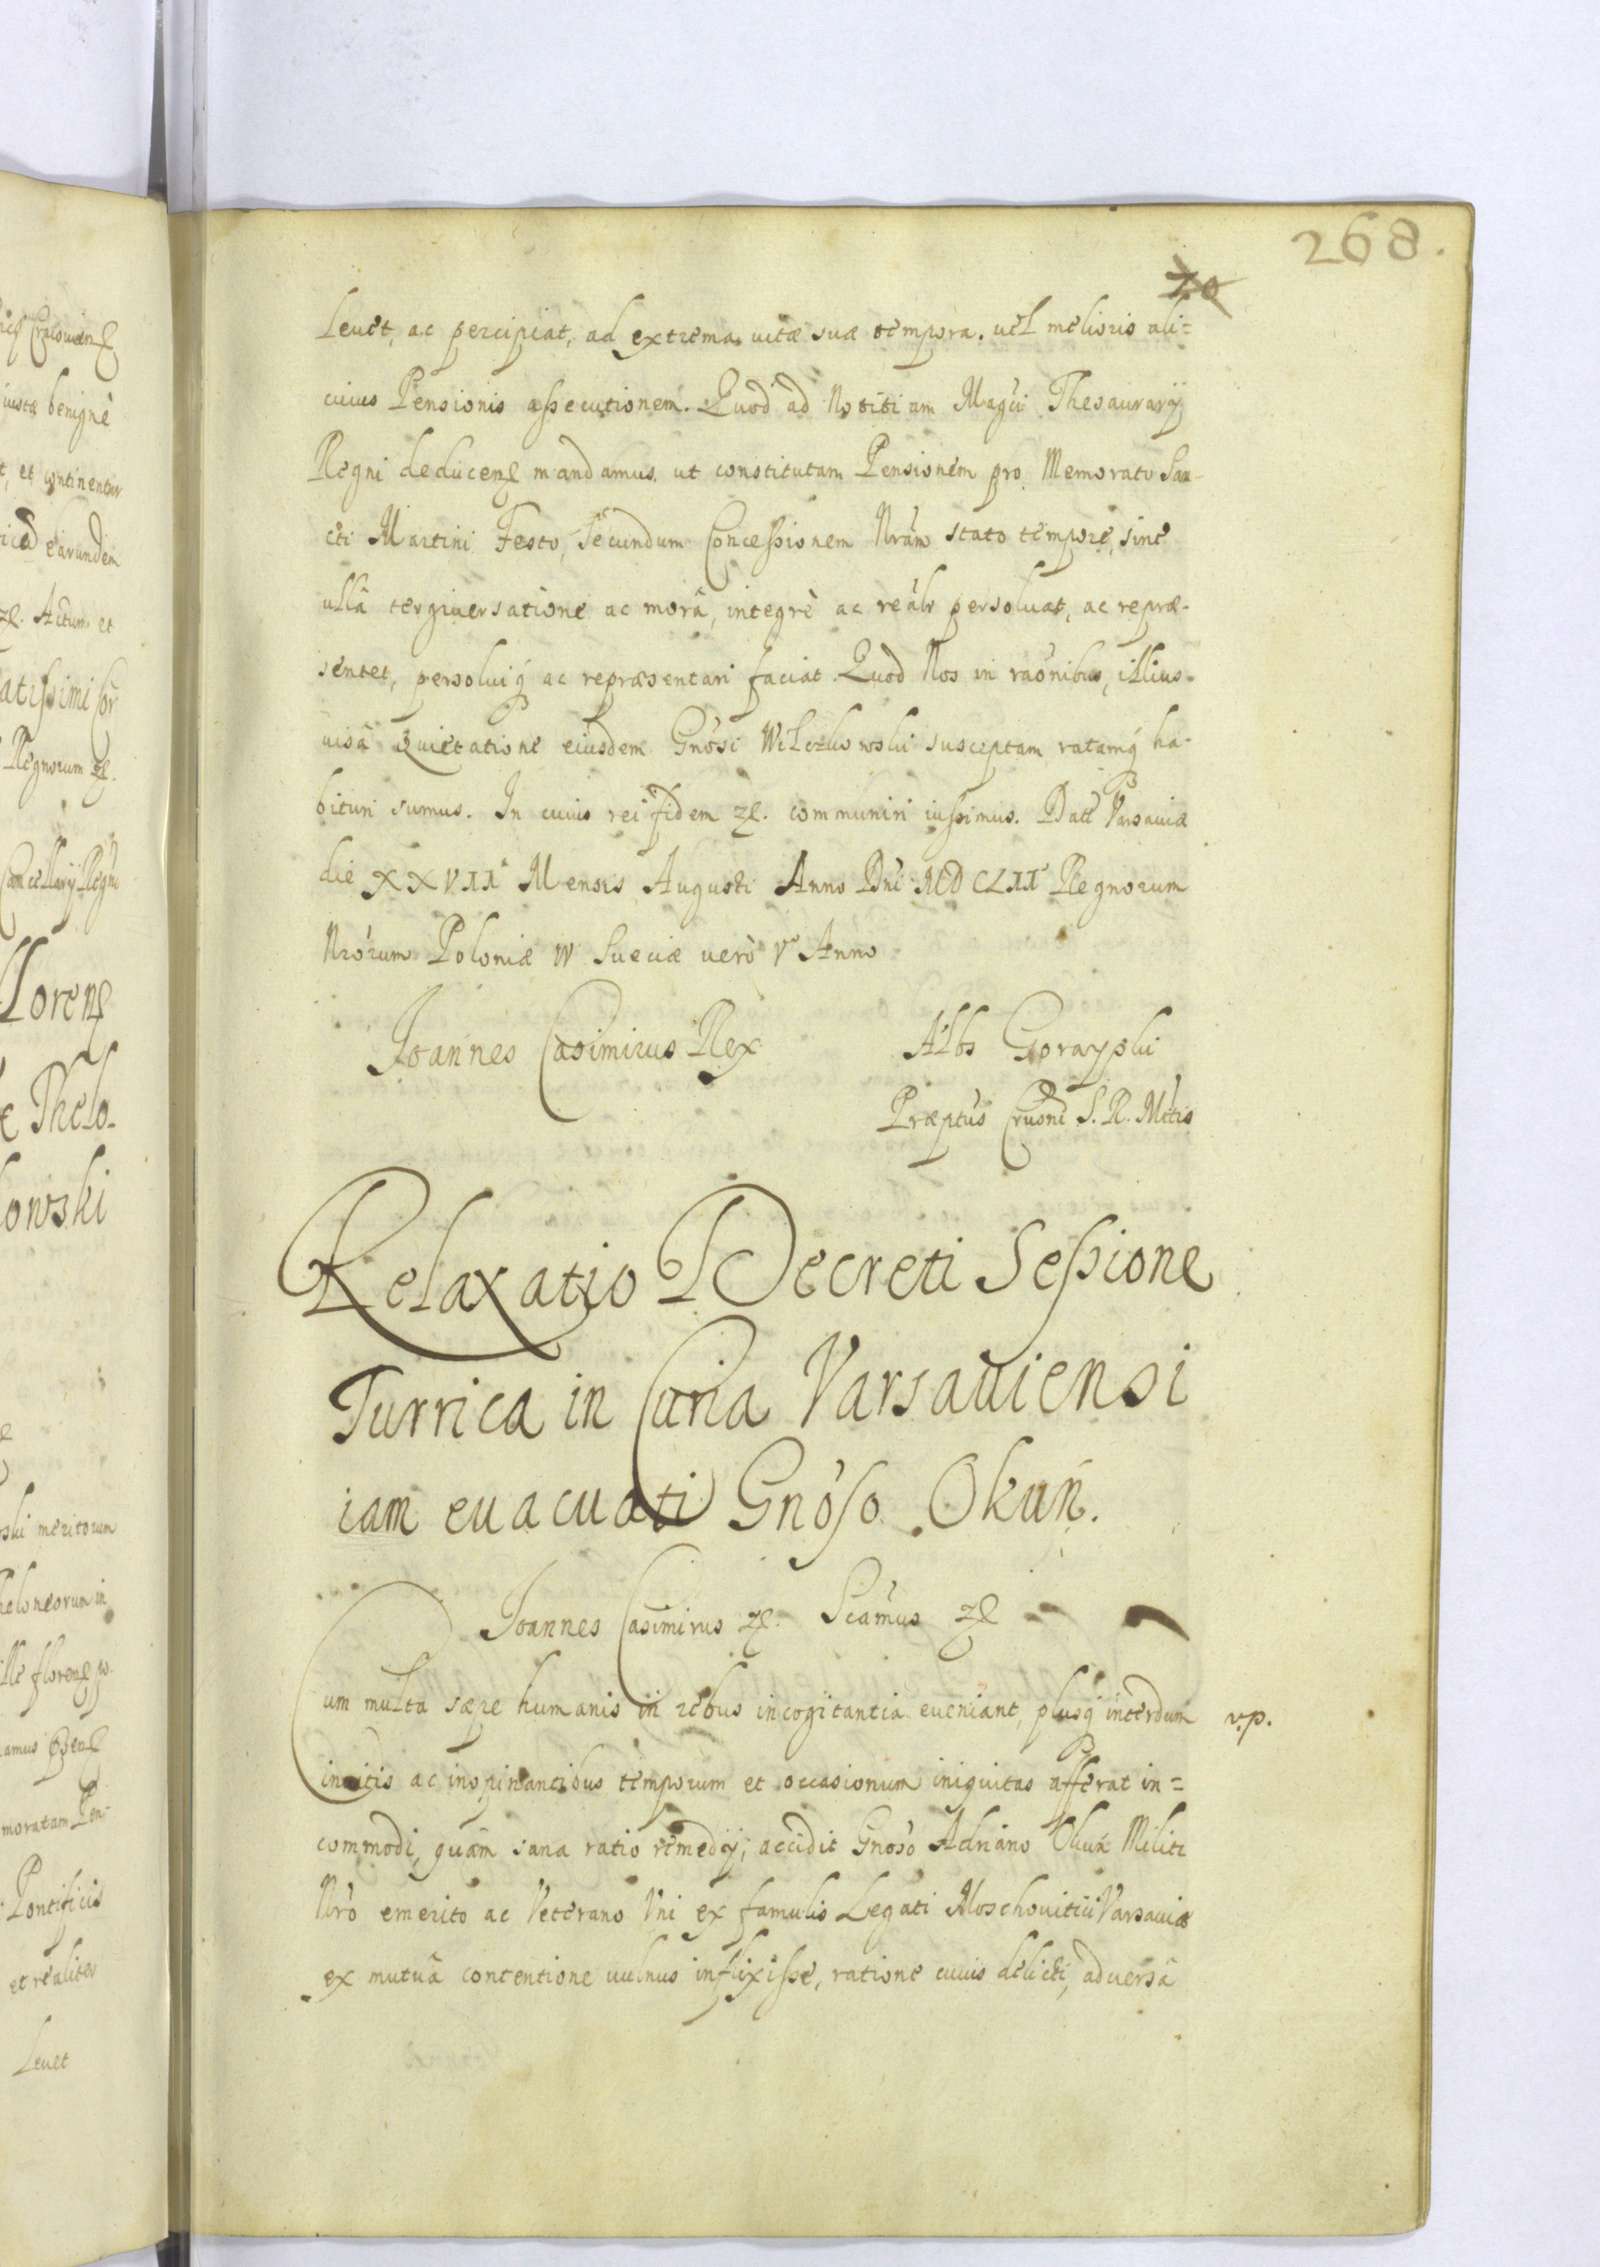 268.
70
Leuet, ac percipiat, ad extrema vitæ suæ tempora. uel melioris ali=
cuius Pensionis assecutionem. Quod ad Notitiam Magci Thesaurarij
Regni deducen mandamus. ut constitutam Pensionem pro Memorato San-
cti Martini Festo, Secundum Concessionem Nram stato tempore, sine
ullâ tergiuersatione ac morâ, integrè ac realr persoluat, ac repræ-
sentet, persoluiq ac repræsentari faciat. Quod Nos in raonibus, illius-
uisâ Quietatione eiusdem Gnosi Wilczkowski susceptam ratamq ha-
bituri sumus. In cuius rei fidem etc. communiri iussimus. Datt Varsauiæ
die XXVII Mensis Augusti Anno Dni MDCLII Regnorum
Nrorum Poloniæ IV Sueciæ verò Vo Anno
Joannes Casimirus Rex
Albs Gorayski
Præptus Cruoni S. R. Mttis
Relaxatio Decreti Sessione
Turrica in Curia Varsauiensi
iam euacuati Gnoso Okuń.
Joannes Casimirus etc. Scamus etc
Cum multa sæpe humanis in rebus incogitantia eueniant, plusq interdum
v.p.
inuitis ac inopinantibus temporum et occasionum iniquitas afferat in=
commodi, quàm sana ratio remedij; accidit Gnoso Adriano Okuń Militi
Nro emerito ac Veterano Vni ex famulis Legati Moschouitici Varsauiæ
ex mutuâ contentione vulnus inflixisse, ratione cuius delicti, aduersâ
benignè
et continentur
earundem
Actum et
Regnorum etc.
Cancellarij Regni
Floren
Thelo-
kowski
meritorum
Pontificis
et realiter
Leuet